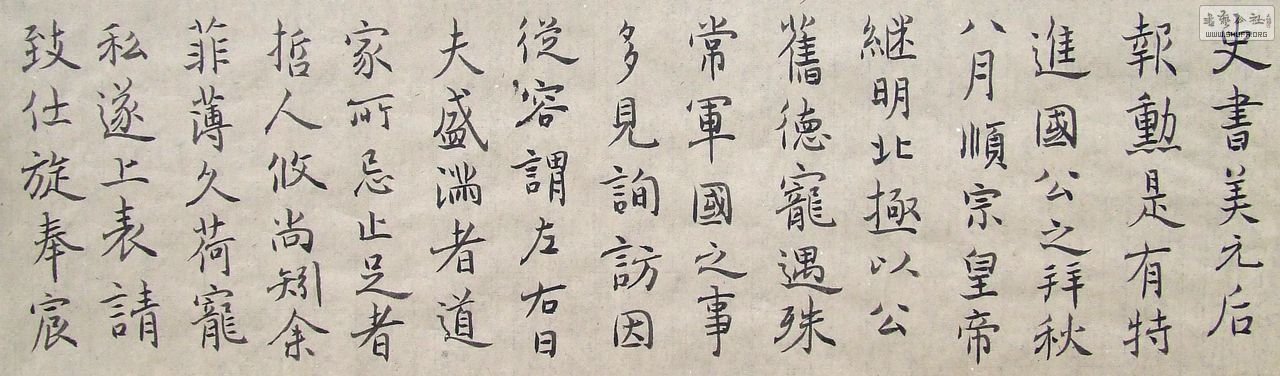 史書美元后
報勳是有特
進國公之拜秋
八月順宗皇帝
継明北極以公
舊德寵遇殊
常軍國之事
多見詢訪因
從容謂左右曰
夫盛满者道
家所忌止足者
哲人攸尚矧余
菲薄久荷寵
私遂上表請
致仕旋奉宸
WWW.SHUFA.ORG